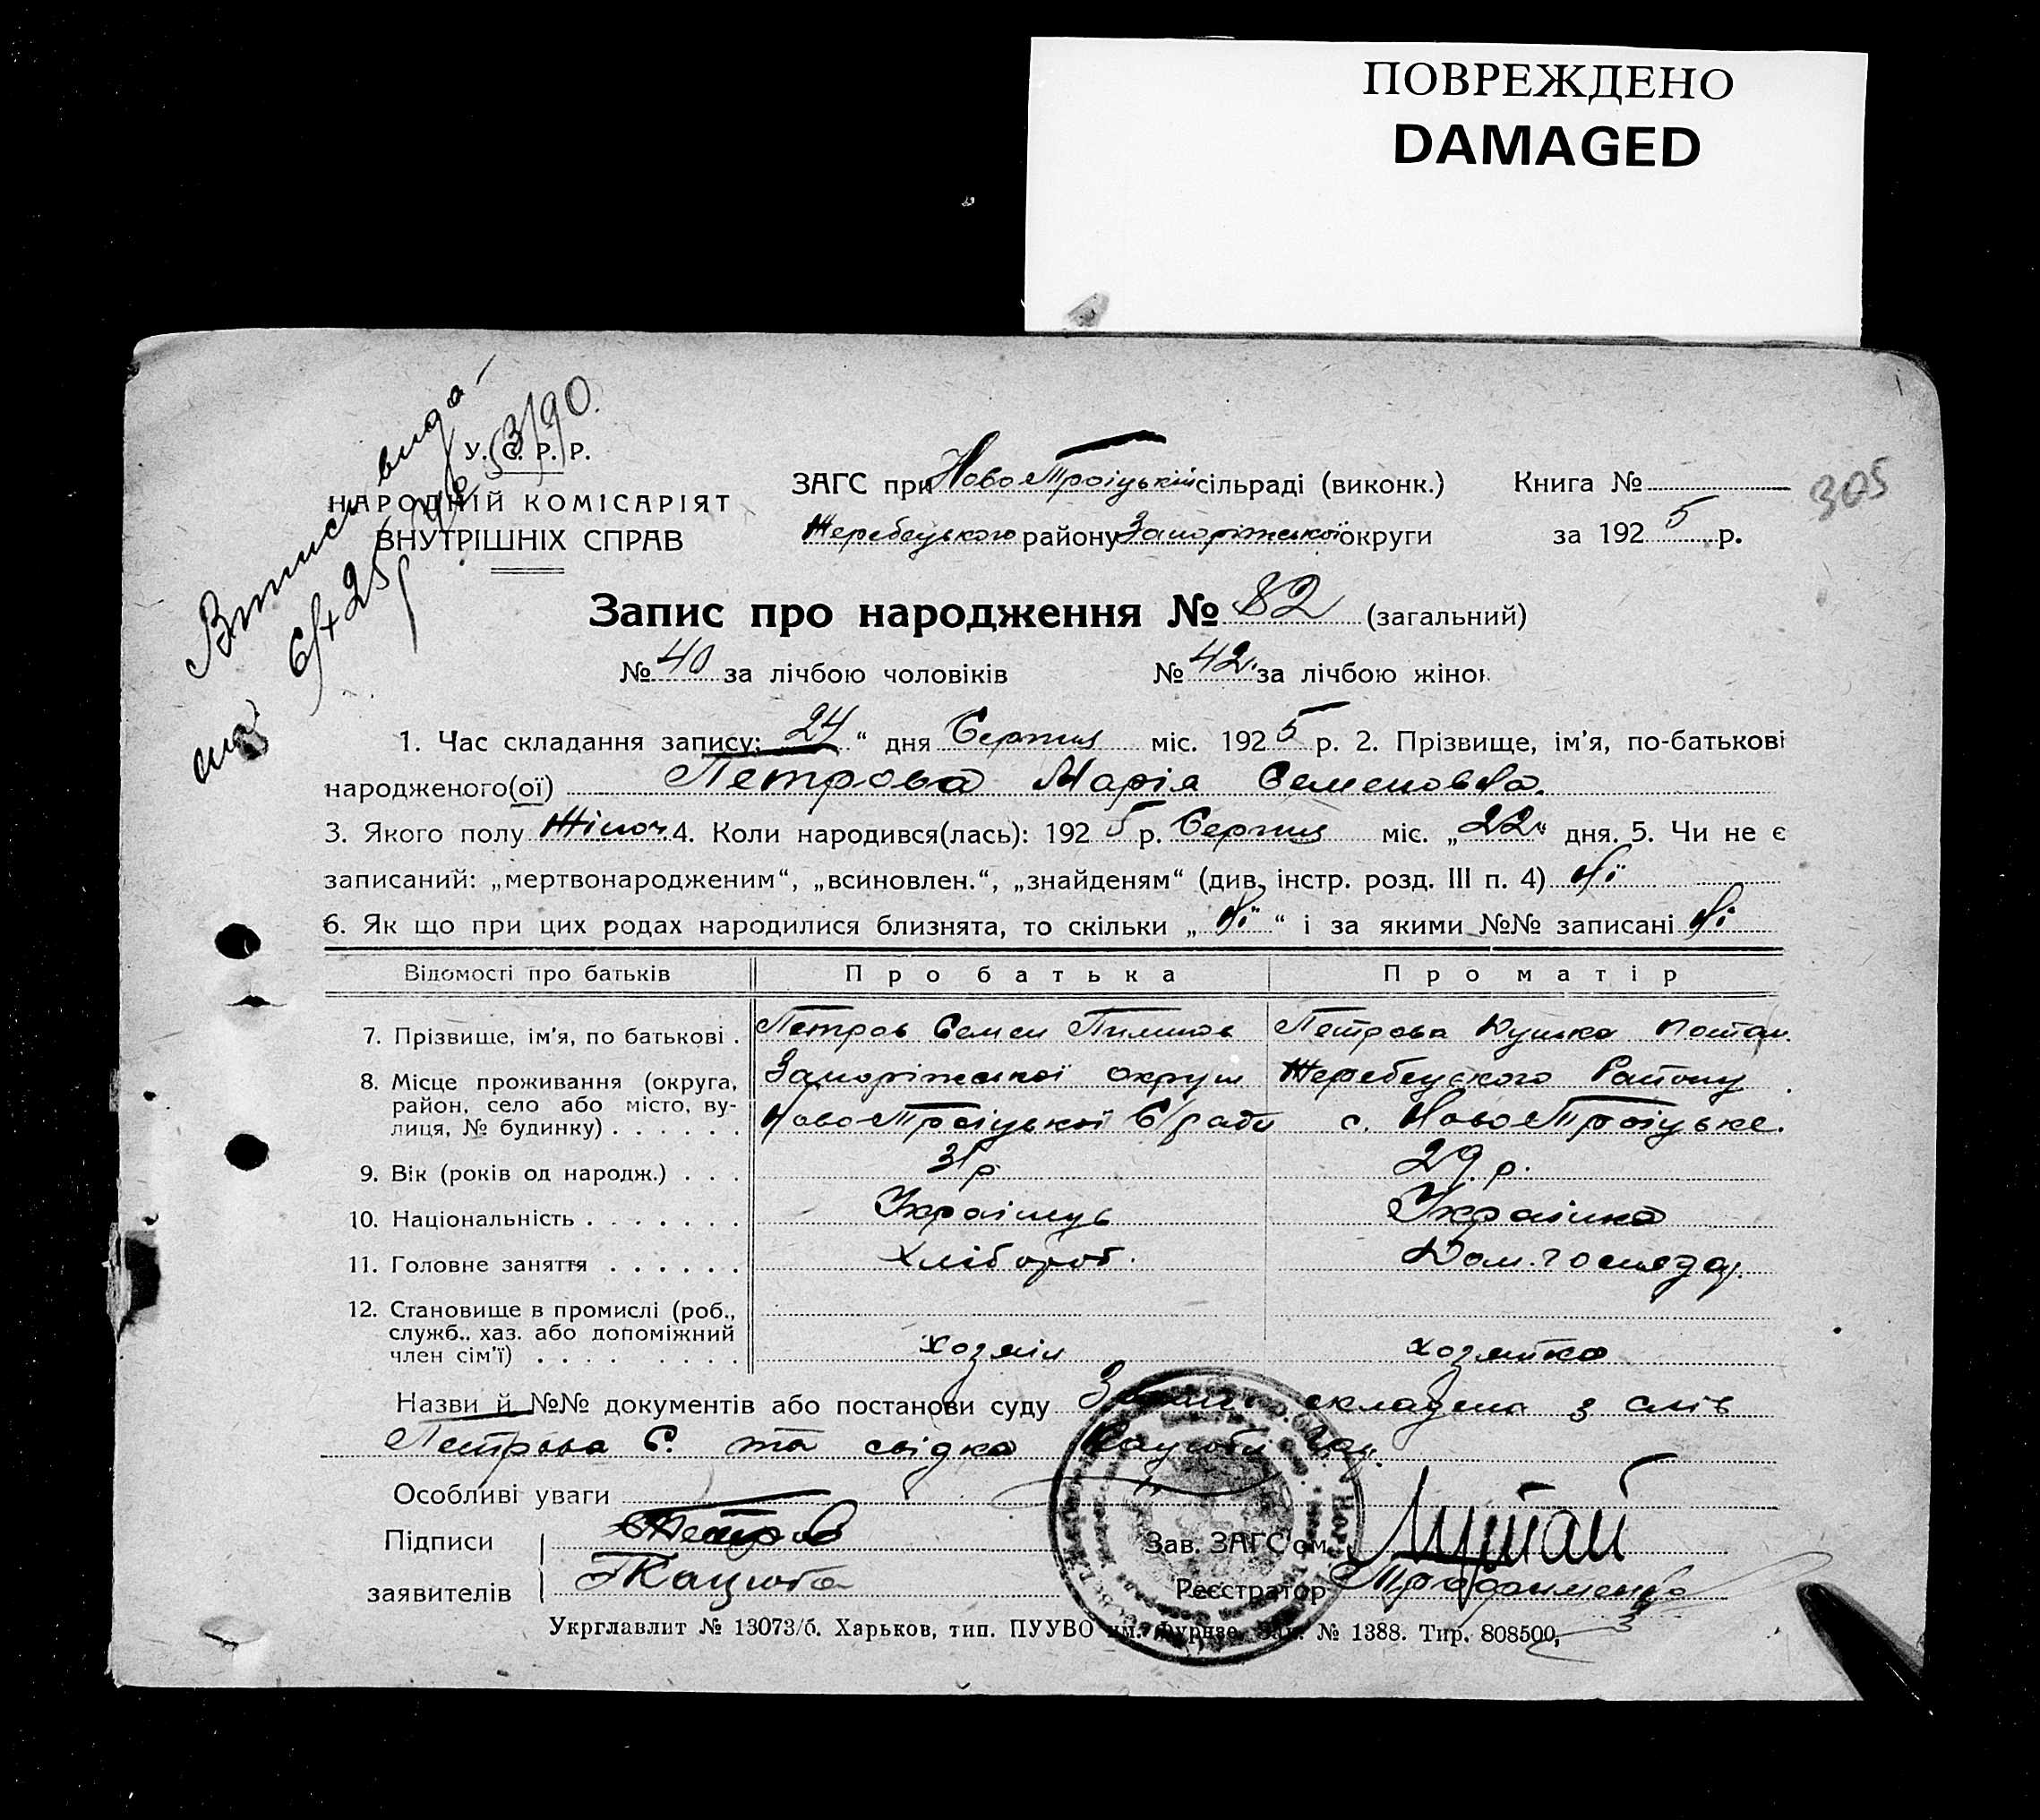 ПОВРЕЖДЕНО
DAMAGED
У. С. Р. Р.
НАРОДНІЙ КОМІСАРІЯТ
ВНУТРІШНІХ СПРАВ
ЗАГС при Ново Троіцькій сільраді (виконк.) Книга №
305
Жеребецького району Запоріжської округи за 1925 р.
Запис про народження № 82 (загальний)
№ 40 за лічбою чоловіків № 42 за лічбою жінок
1. Час складання запису: „24“ дня Серпня міс. 1925 р. 2. Прізвище, ім'я, по-батькові
народженого(ої) Петрова Марія Семеновна.
3. Якого полу Жіноч. 4. Коли народився(лась): 1925 р. Серпня міс. „22“ дня. 5. Чи не є
записаний: „мертвонародженим“, „всиновлен.“, „знайденям“ (див. інстр. розд. III п. 4) Ні
6. Як що при цих родах народилися близнята, то скільки „Ні“ і за якими №№ записані Ні
Відомості про батьків Про батька Про матір
7. Прізвище, ім'я, по батькові . Петров Семен Петрова
8. Місце проживання (округа, Запоріжської округи Жеребецского Району
район, село або місто, ву-
лиця, № будинку) . . . . . . Ново Троіцької С/ради с. Ново Троіцьке.
9. Вік (років од народж.) . . . 31 р. 29 р.
10. Національність . . . . . . . Українець Українка
11. Головне заняття . . . . . . Хлібороб. Дом. господар.
12. Становище в промислі (роб.,
служб., хаз. або допоміжний
член сім'ї) . . . . . . . . . хозяін хозяйка
Назви й №№ документів або постанови суду складена з слів
Петрова С. та свідка
Особливі уваги
Підписи Петров Зав. ЗАГС'ом
заявителів Кацюба Реєстратор
Укрглавлит № 13073/б. Харьков, тип. ПУУВО им. Фрунзе. Зак. № 1388. Тир. 808500,